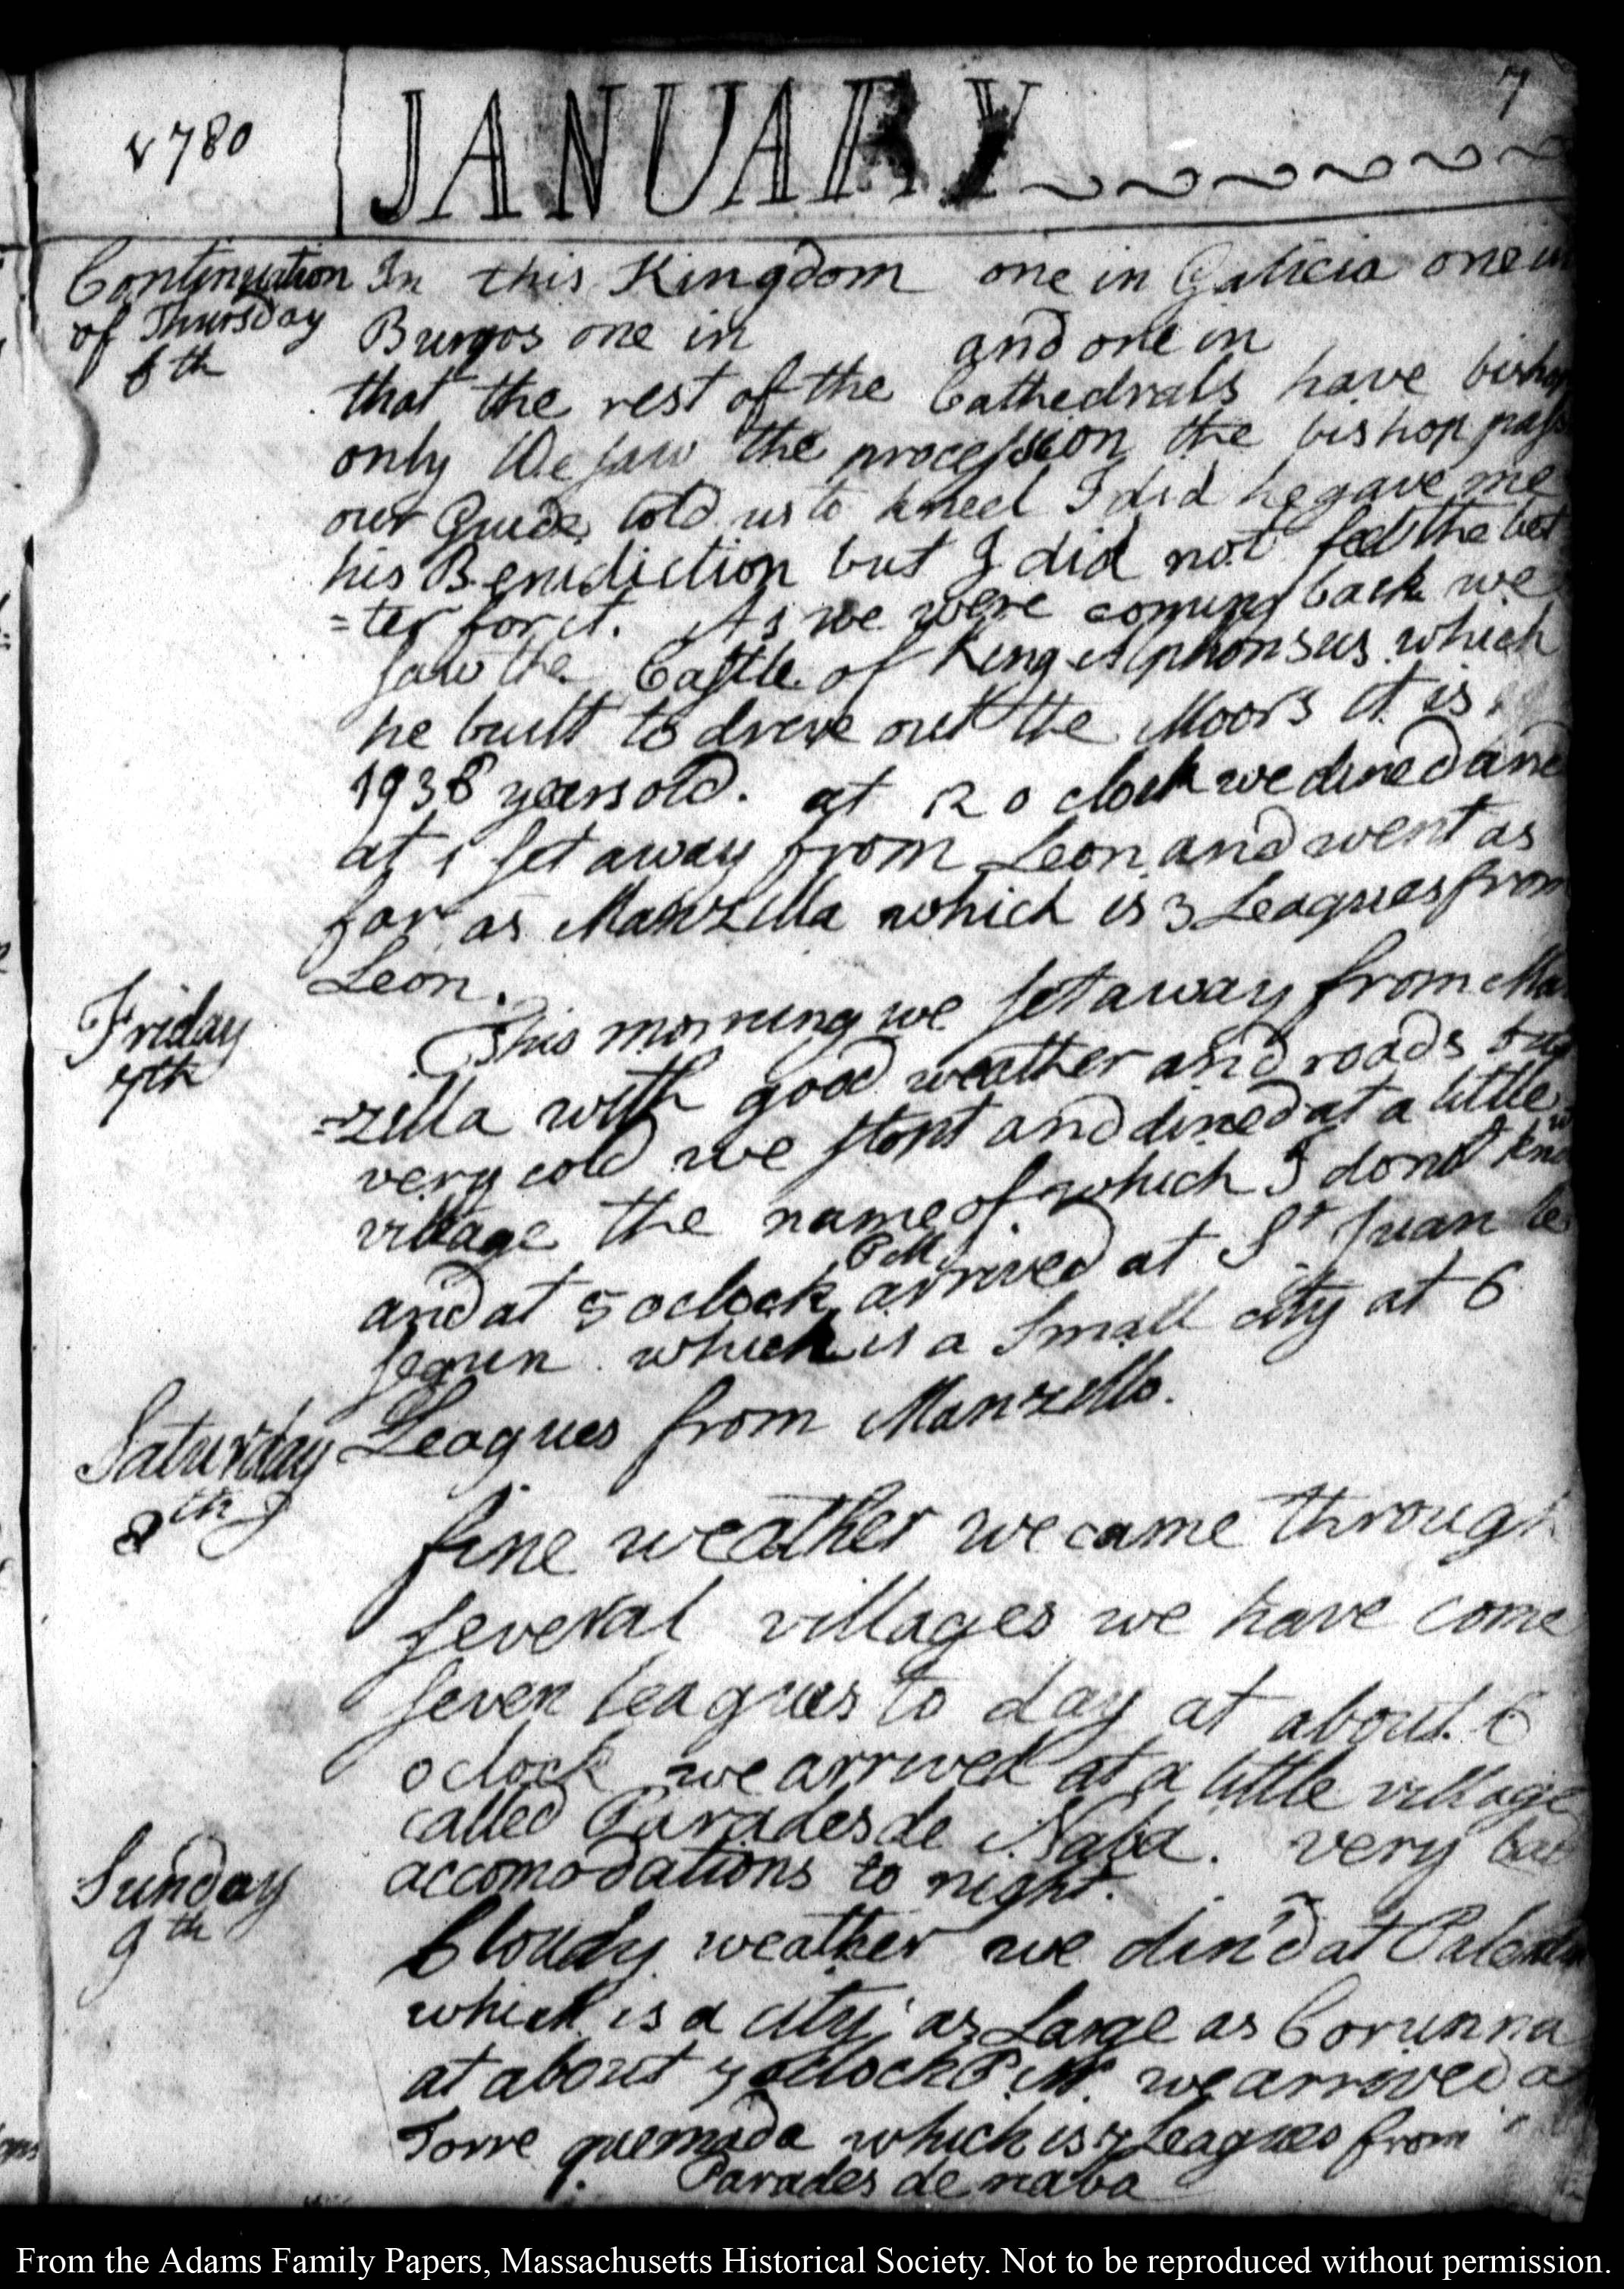 1780
JANUARY
7
Continuation
of Thursday
6th
In this Kingdom one in Galicia one in
Burgos one in and one in
that the rest of the Cathedrals have bishop
only We saw the procession the bishop pass
our Guide told us to kneel I did he gave me
his Benediction but I did not feel the bet
=ter for it. As we were coming back we
saw the Castle of King Alphonsus which
he built to drive out the Moors it is
1938 years old. at 12 o clock we dined and
at 1 set away from Leon and went as
far as Manzilla which is 3 Leagues from
Leon.
Friday
7th
This morning we set away from Man
=zilla with good weather and roads but
very cold we stopt and dined at a little
village the name of which I dont know
and at 5 oclock PM arrived at St Juan le
segun which is a Small city at 6
Leagues from Manzilla.
Saturday
8th
fine weather we came through
several villages we have come
seven leagues to day at about 6
o clock we arrived at a little village
called Parades de Naba. very bad
accomodations to night.
Sunday
9th
Cloudy weather we din'd at Palentia
which is a city as Large as Corunna
at about 7 oclock P.M. we arrived a
Torre quemada which is 7 Leagues from
Parades de naba
From the Adams Family Papers, Massachusetts Historical Society. Not to be reproduced without permission.